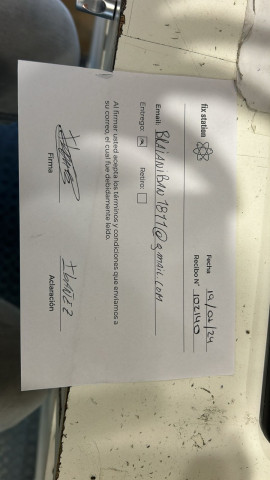 fix station
Fecha 19/02/24
Recibo N° 102140
Email: BRAIANIBAN1811@gmail.com
Entrego: Retiro:
Al firmar usted acepta los términos y condiciones que enviamos a
su correo, el cual fue debidamente leído.
Firma
Aclaración